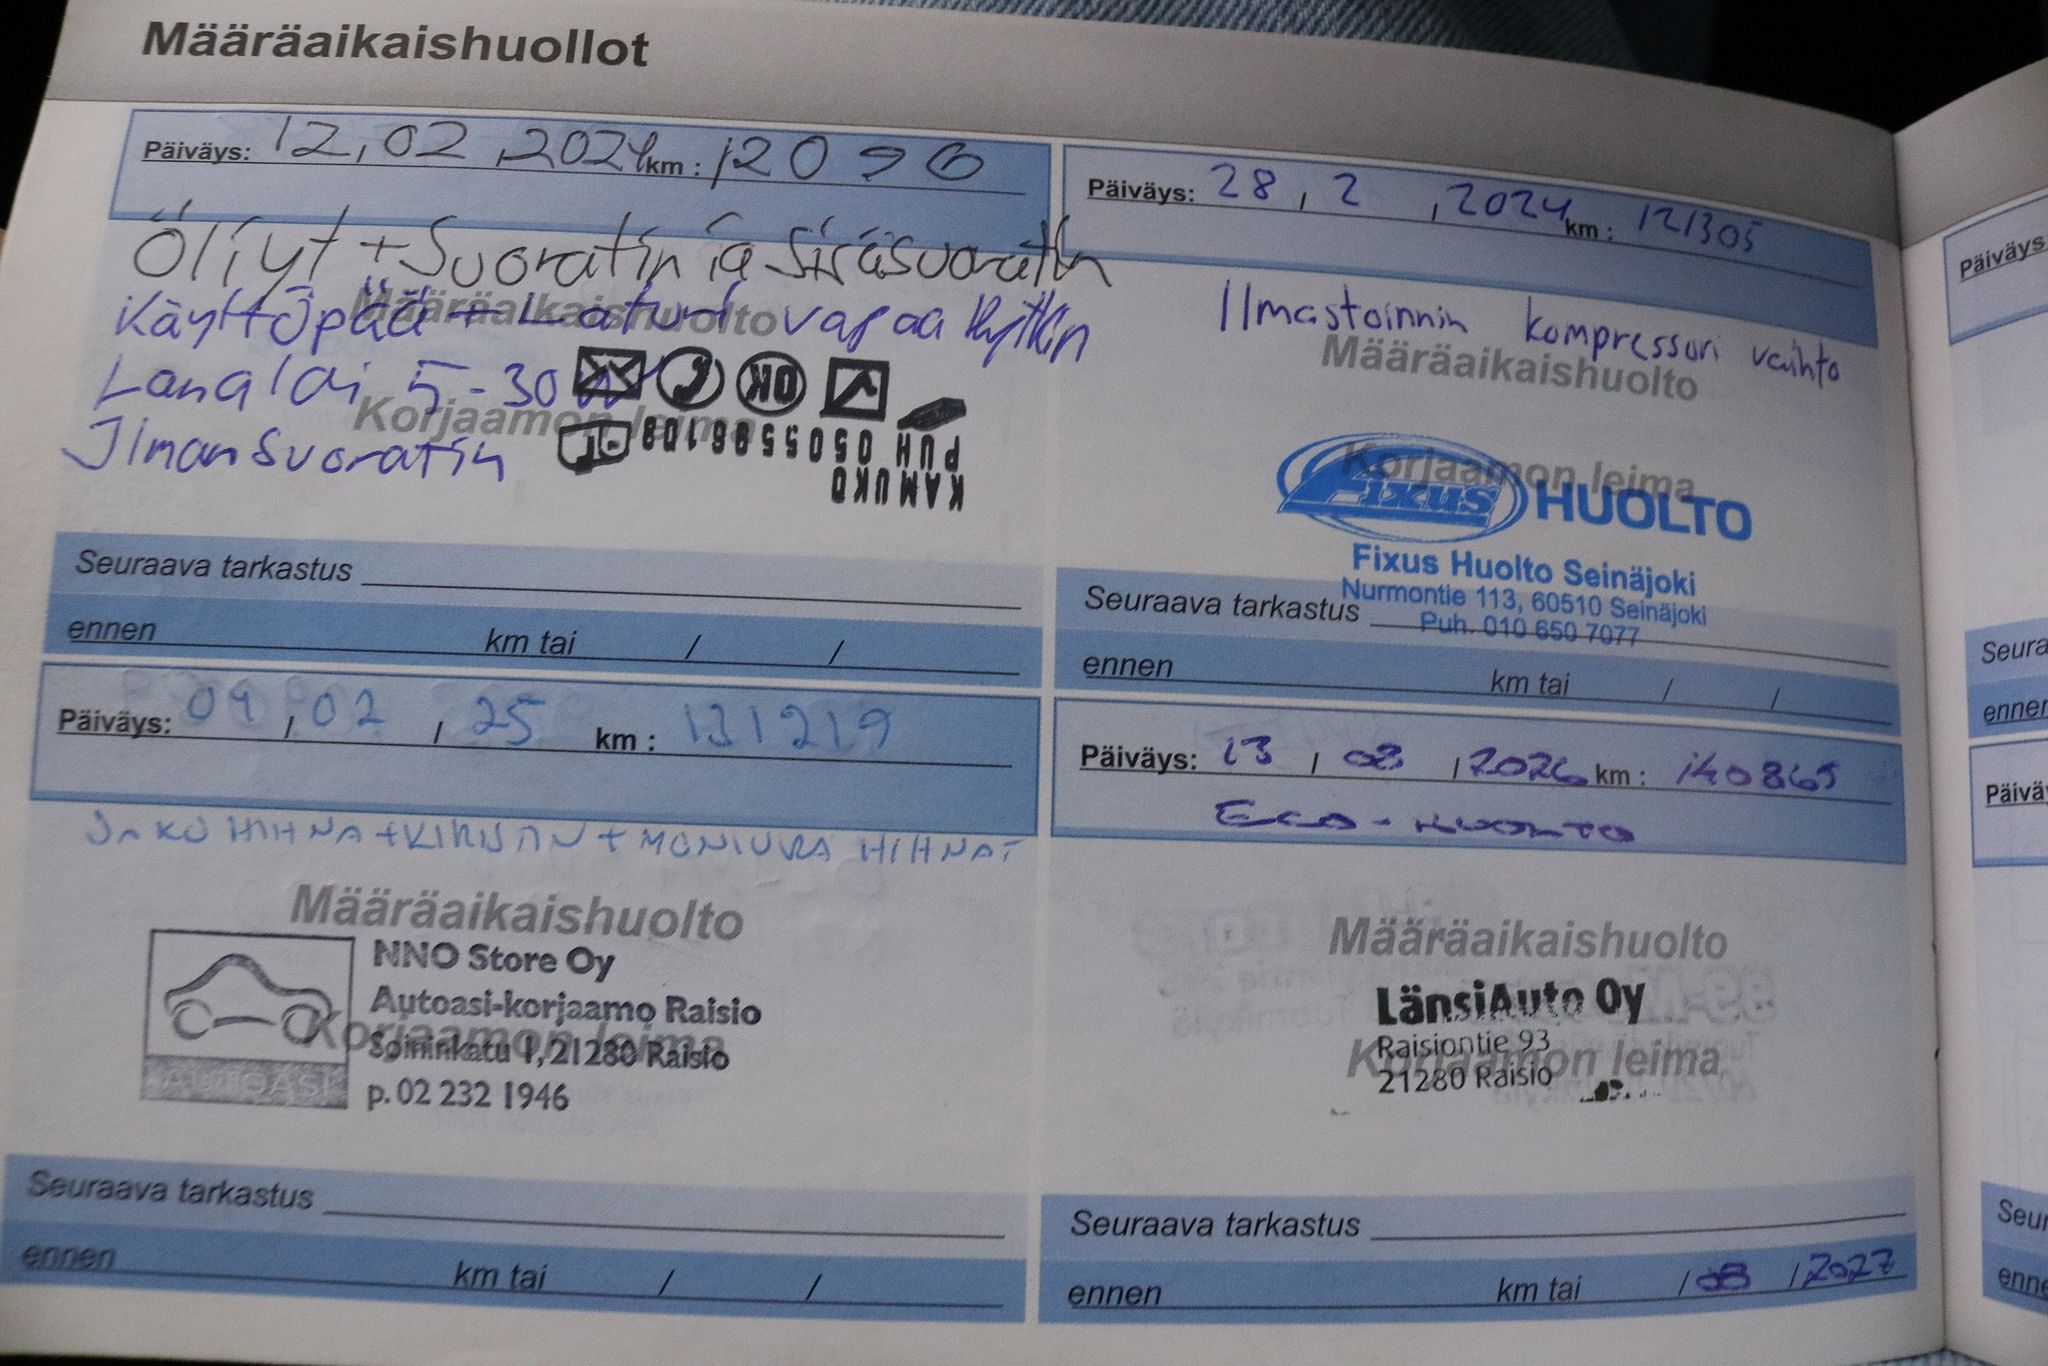 Määräaikaishuollot
Päiväys: 12, 02, 2024 km: 120 9 6
Öljyt + Suoratin ja Sisäsuoratin
Käyttöpää + Laturi vapaa kytkin
Määräaikaishuolto
Lanaldi 5-30 W
Korjaamon leima
Ilmansuoratin
PUH 0505598108
KAMUKO
Seuraava tarkastus
ennen km tai / /
Päiväys: 28, 2, 2024 km: 121305
Ilmastoinnin kompressori vaihto
Määräaikaishuolto
Korjaamon leima
Fixus HUOLTO
Fixus Huolto Seinäjoki
Nurmontie 113, 60510 Seinäjoki
Seuraava tarkastus
Puh. 010 650 7077
ennen km tai / /
Päiväys: 04 / 02 / 25 km: 131219
JAKOHIHNA+KIRISTIN + MONIURA HIHNAT
Määräaikaishuolto
NNO Store Oy
Autoasi-korjaamo Raisio
Korjaamon leima
Soininkatu 1, 21280 Raisio
AUTOASI
p. 02 232 1946
Seuraava tarkastus
ennen km tai / /
Päiväys: 13 / 03 / 2026 km: 140865
ECO-HUOLTO
Määräaikaishuolto
LänsiAuto Oy
Raisiontie 93
Korjaamon leima
21280 Raisio
Seuraava tarkastus
ennen km tai / 08 / 2027
Päiväys
Seura
ennen
Päiväy
Seur
enne